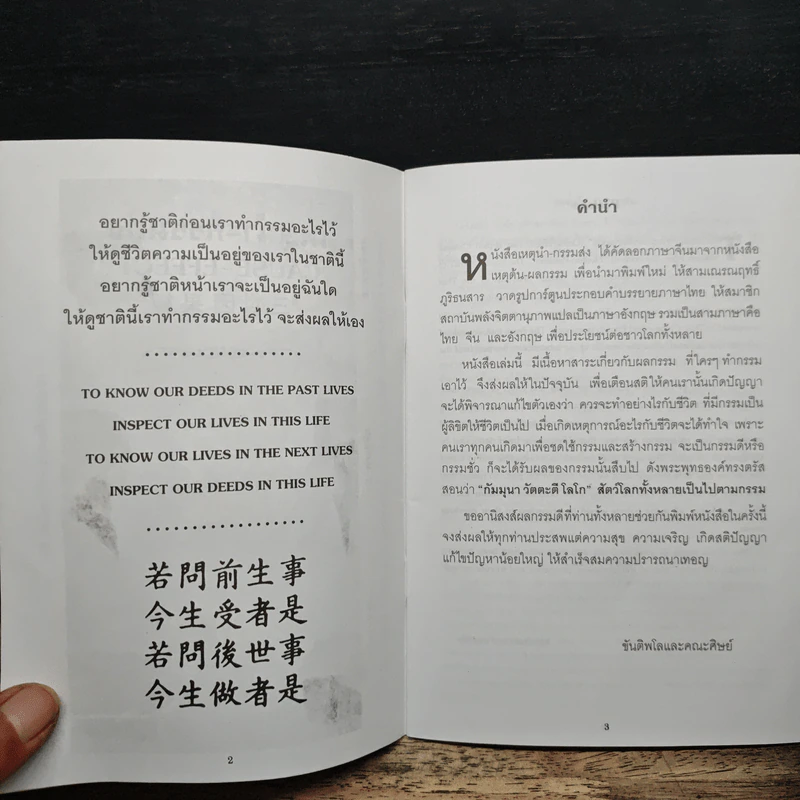 อยากรู้ชาติก่อนเราทำกรรมอะไรไว้
ให้ดูชีวิตความเป็นอยู่ของเราในชาตินี้
อยากรู้ชาติหน้าเราจะเป็นอยู่ฉันใด
ให้ดูชาตินี้เราทำกรรมอะไรไว้ จะส่งผลให้เอง
TO KNOW OUR DEEDS IN THE PAST LIVES
INSPECT OUR LIVES IN THIS LIFE
TO KNOW OUR LIVES IN THE NEXT LIVES
INSPECT OUR DEEDS IN THIS LIFE
若問前生事
今生受者是
若問後世事
今生做者是
2
คำนำ
หนังสือเหตุนำ-กรรมส่ง ได้คัดลอกภาษาจีนมาจากหนังสือ
เหตุต้น-ผลกรรม เพื่อนำมาพิมพ์ใหม่ ให้สามเณรณฤทธิ์
ภูริธนสาร วาดรูปการ์ตูนประกอบคำบรรยายภาษาไทย ให้สมาชิก
สถาบันพลังจิตตานุภาพแปลเป็นภาษาอังกฤษ รวมเป็นสามภาษาคือ
ไทย จีน และอังกฤษ เพื่อประโยชน์ต่อชาวโลกทั้งหลาย
หนังสือเล่มนี้ มีเนื้อหาสาระเกี่ยวกับผลกรรม ที่ใครๆ ทำกรรม
เอาไว้ จึงส่งผลให้ในปัจจุบัน เพื่อเตือนสติให้คนเรานั้นเกิดปัญญา
จะได้พิจารณาแก้ไขตัวเองว่า ควรจะทำอย่างไรกับชีวิต ที่มีกรรมเป็น
ผู้ลิขิตให้ชีวิตเป็นไป เมื่อเกิดเหตุการณ์อะไรกับชีวิตจะได้ทำใจ เพราะ
คนเราทุกคนเกิดมาเพื่อชดใช้กรรมและสร้างกรรม จะเป็นกรรมดีหรือ
กรรมชั่ว ก็จะได้รับผลของกรรมนั้นสืบไป ดังพระพุทธองค์ทรงตรัส
สอนว่า "กัมมุนา วัตตะตี โลโก" สัตว์โลกทั้งหลายเป็นไปตามกรรม
ขออานิสงส์ผลกรรมดีที่ท่านทั้งหลายช่วยกันพิมพ์หนังสือในครั้งนี้
จงส่งผลให้ทุกท่านประสพแต่ความสุข ความเจริญ เกิดสติปัญญา
แก้ไขปัญหาน้อยใหญ่ ให้สำเร็จสมความปรารถนาเทอญ
ขันติพโลและคณะศิษย์
3